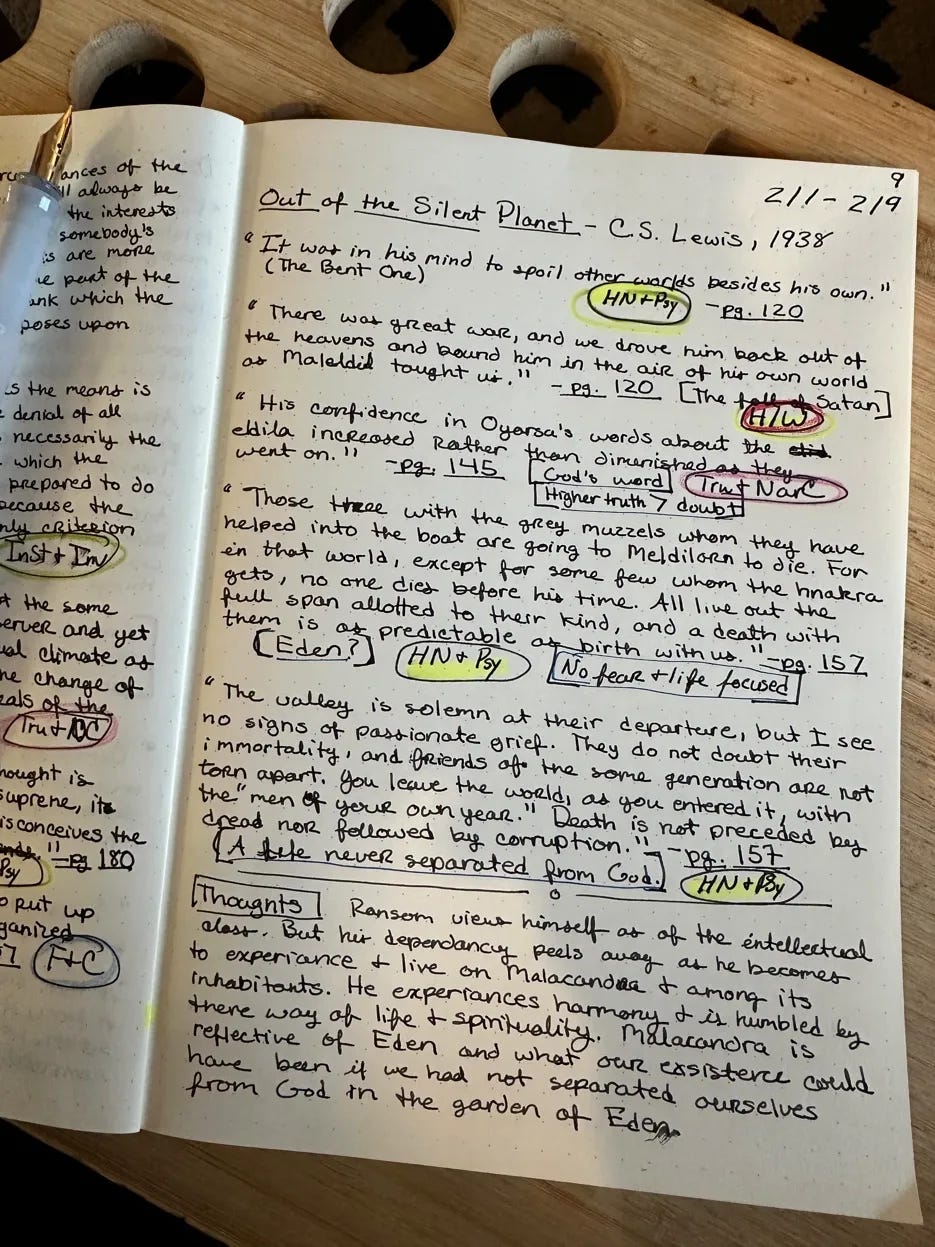 ances of the
always be
the interests
somebody's
is are more
part of the
which the
poses upon
s the means is
denial of all
necessarily the
which the
prepared to do
because the
only criterion
InSt + Inv
the same
server and yet
climate as
change of
of the
Tru + NC
hought is
suprene, its
isconceives the
" - pg 180
Psy
put up
ganized
F+C
9
2/1 - 2/9
Out of the Silent Planet - C.S. Lewis, 1938
"It was in his mind to spoil other worlds besides his own."
(The Bent One)
HN + Psy
- pg. 120
"There was great war, and we drove him back out of
the heavens and bound him in the air of his own world
as Maleldil tought us." - pg. 120 [The fall of Satan]
H/W
"His confidence in Oyarsa's words about the
eldila increased Rather than diminished as they
went on." - pg. 145
[God's word]
Higher truth > doubt
Tru + NarC
"Those with the grey muzzels whom they have
helped into the boat are going to Meldilorn to die. For
in that world, except for some few whom the hnakra
gets, no one dies before his time. All live out the
full span allotted to their kind, and a death with
them is as predictable as birth with us." - pg. 157
[Eden?]
HN + Psy
No fear + life focused
"The valley is solemn at their departure, but I see
no signs of passionate grief. They do not doubt their
immortality, and friends of the same generation are not
torn apart. You leave the world, as you entered it, with
the "men of your own year." Death is not preceded by
dread nor followed by corruption." - pg. 157
[A life never separated from God.]
HN + Psy
Thoughts Ransom views himself as of the intellectual
class. But his dependancy peels away as he becomes
to experiance + live on Malacandra + among its
inhabitants. He experiances harmony + is humbled by
there way of life + spirituality. Malacandra is
reflective of Eden and what our exsistence could
have been if we had not separated ourselves
from God in the garden of Eden